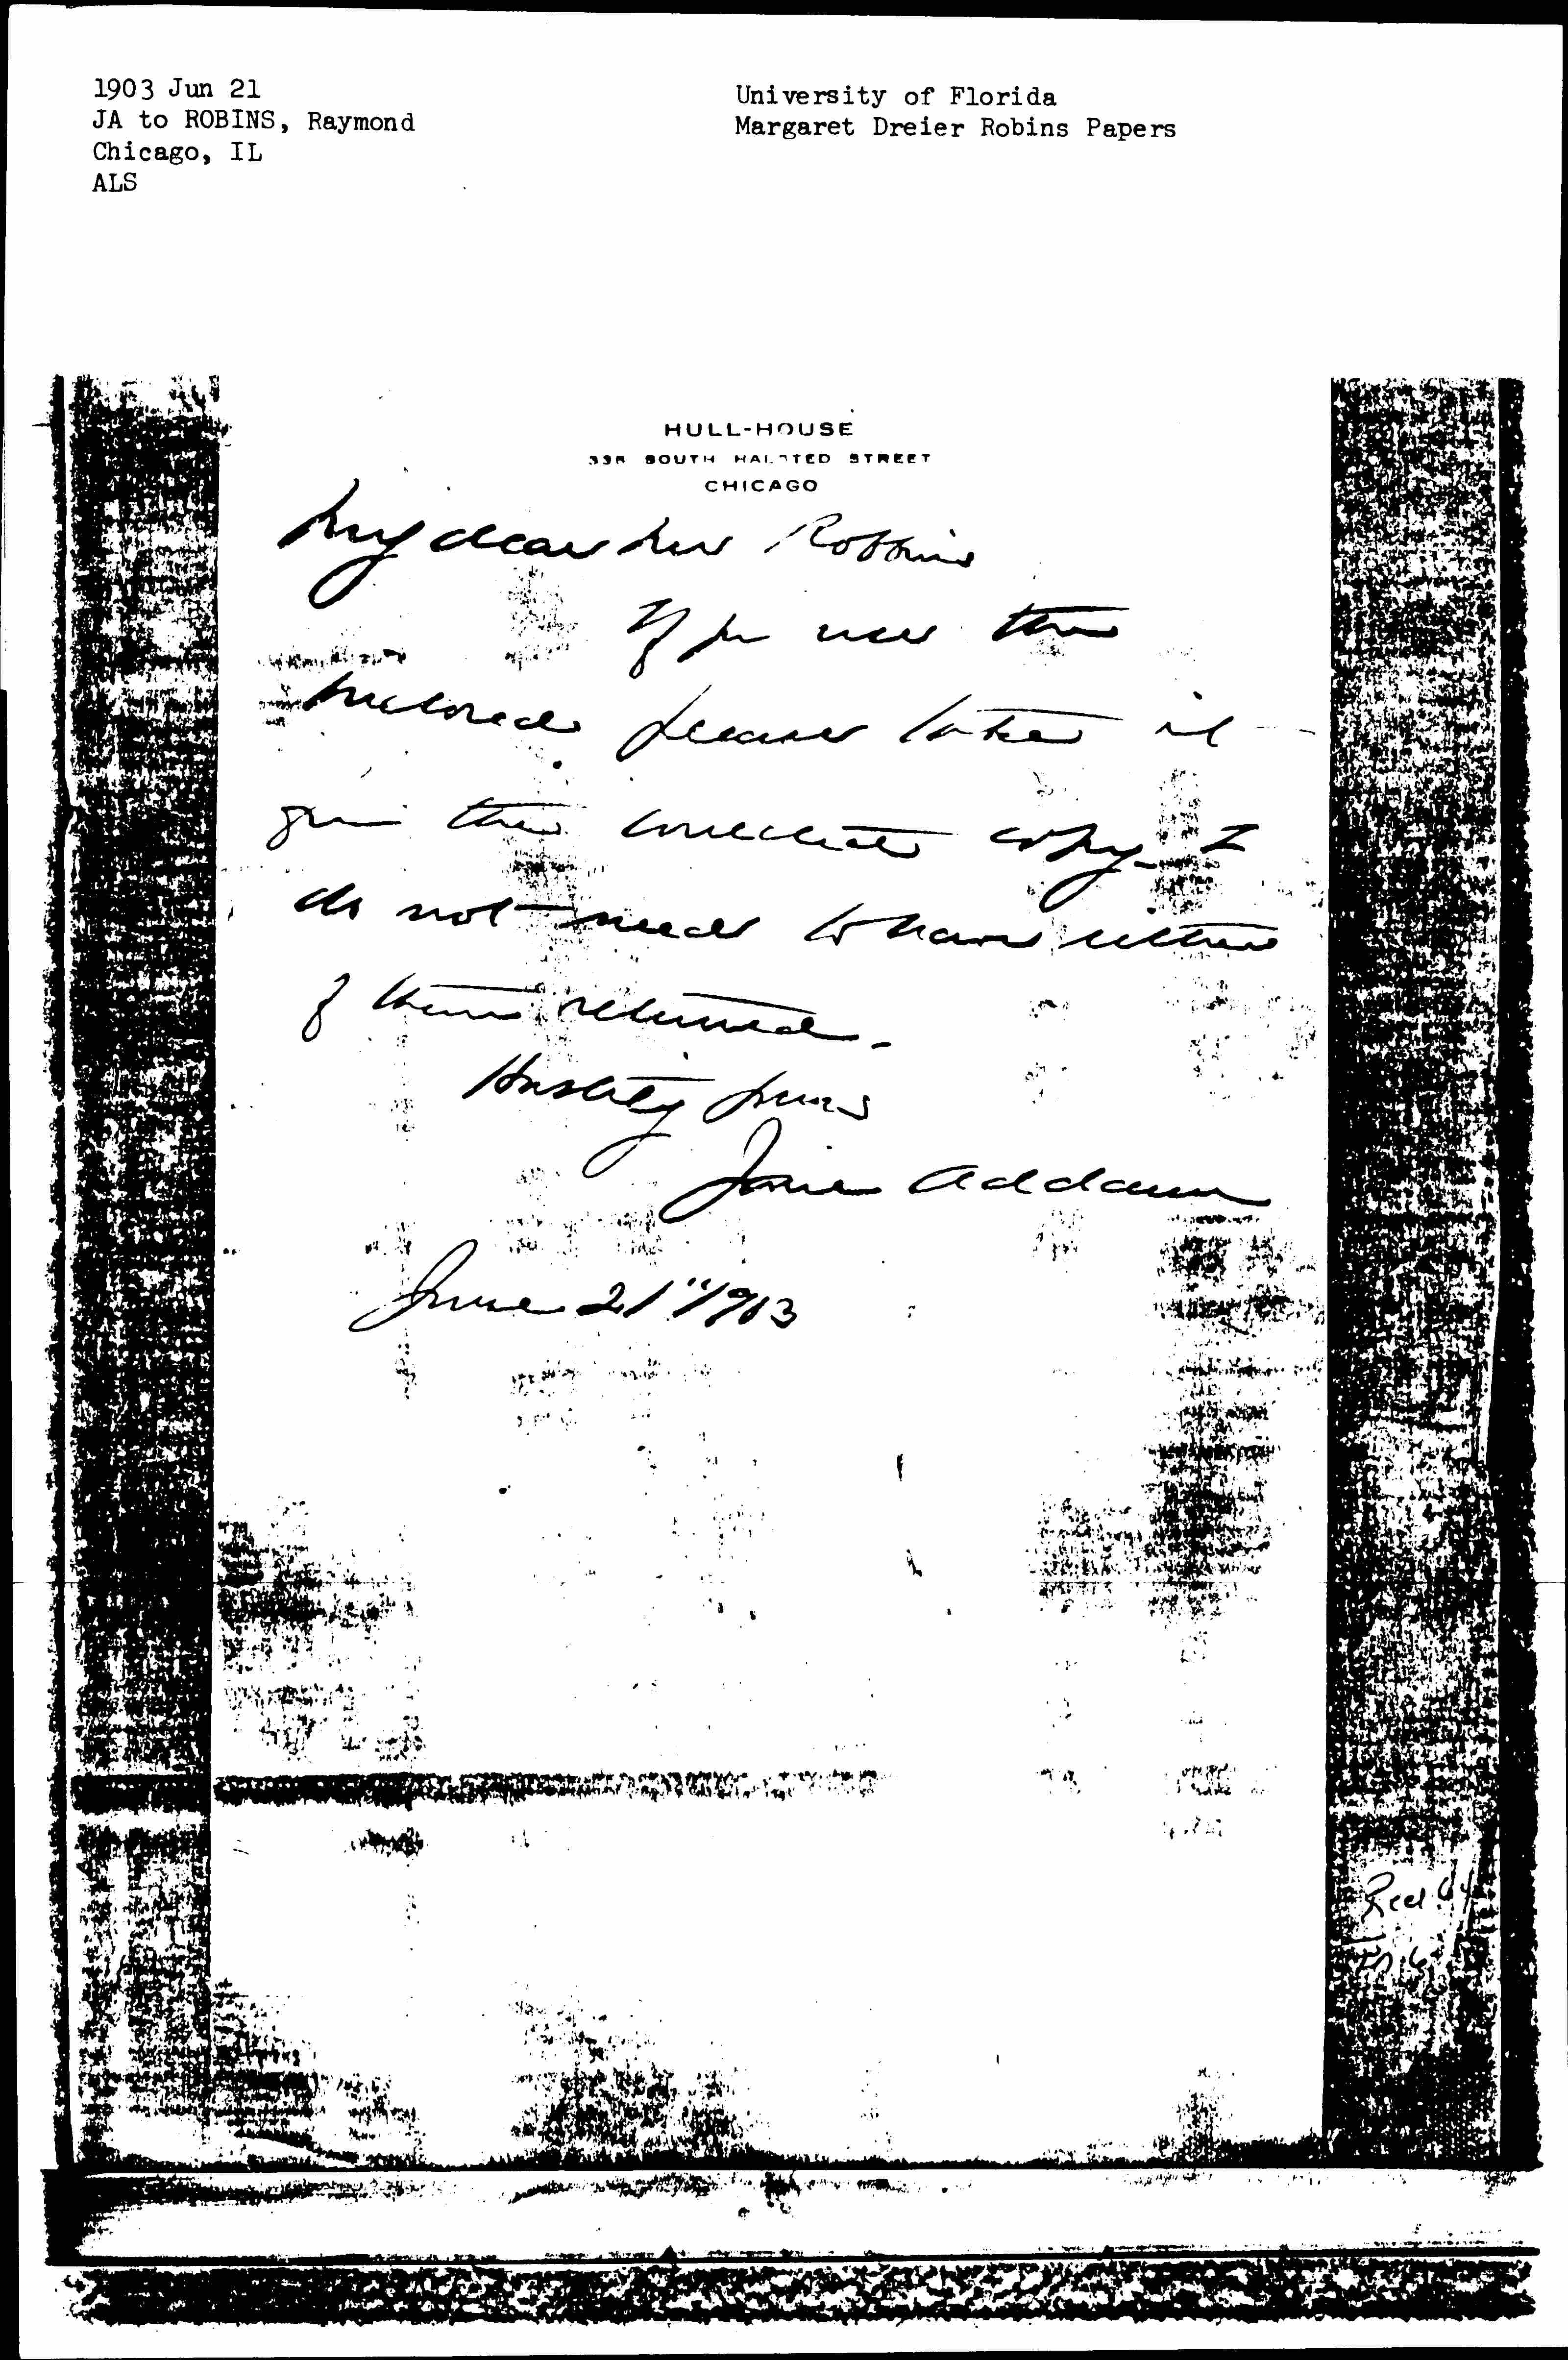 1903 Jun 21
JA to ROBINS, Raymond
Chicago, IL
ALS
University of Florida
Margaret Dreier Robins Papers
HULL-HOUSE
335 SOUTH HALSTED STREET
CHICAGO
My dear Mr Robbins
If you use the
enclosed please take it
from the corrected copy. I
do not need to have either
of them returned.
Hastily yours
Jane Addams
June 21" 1903
Reel 64